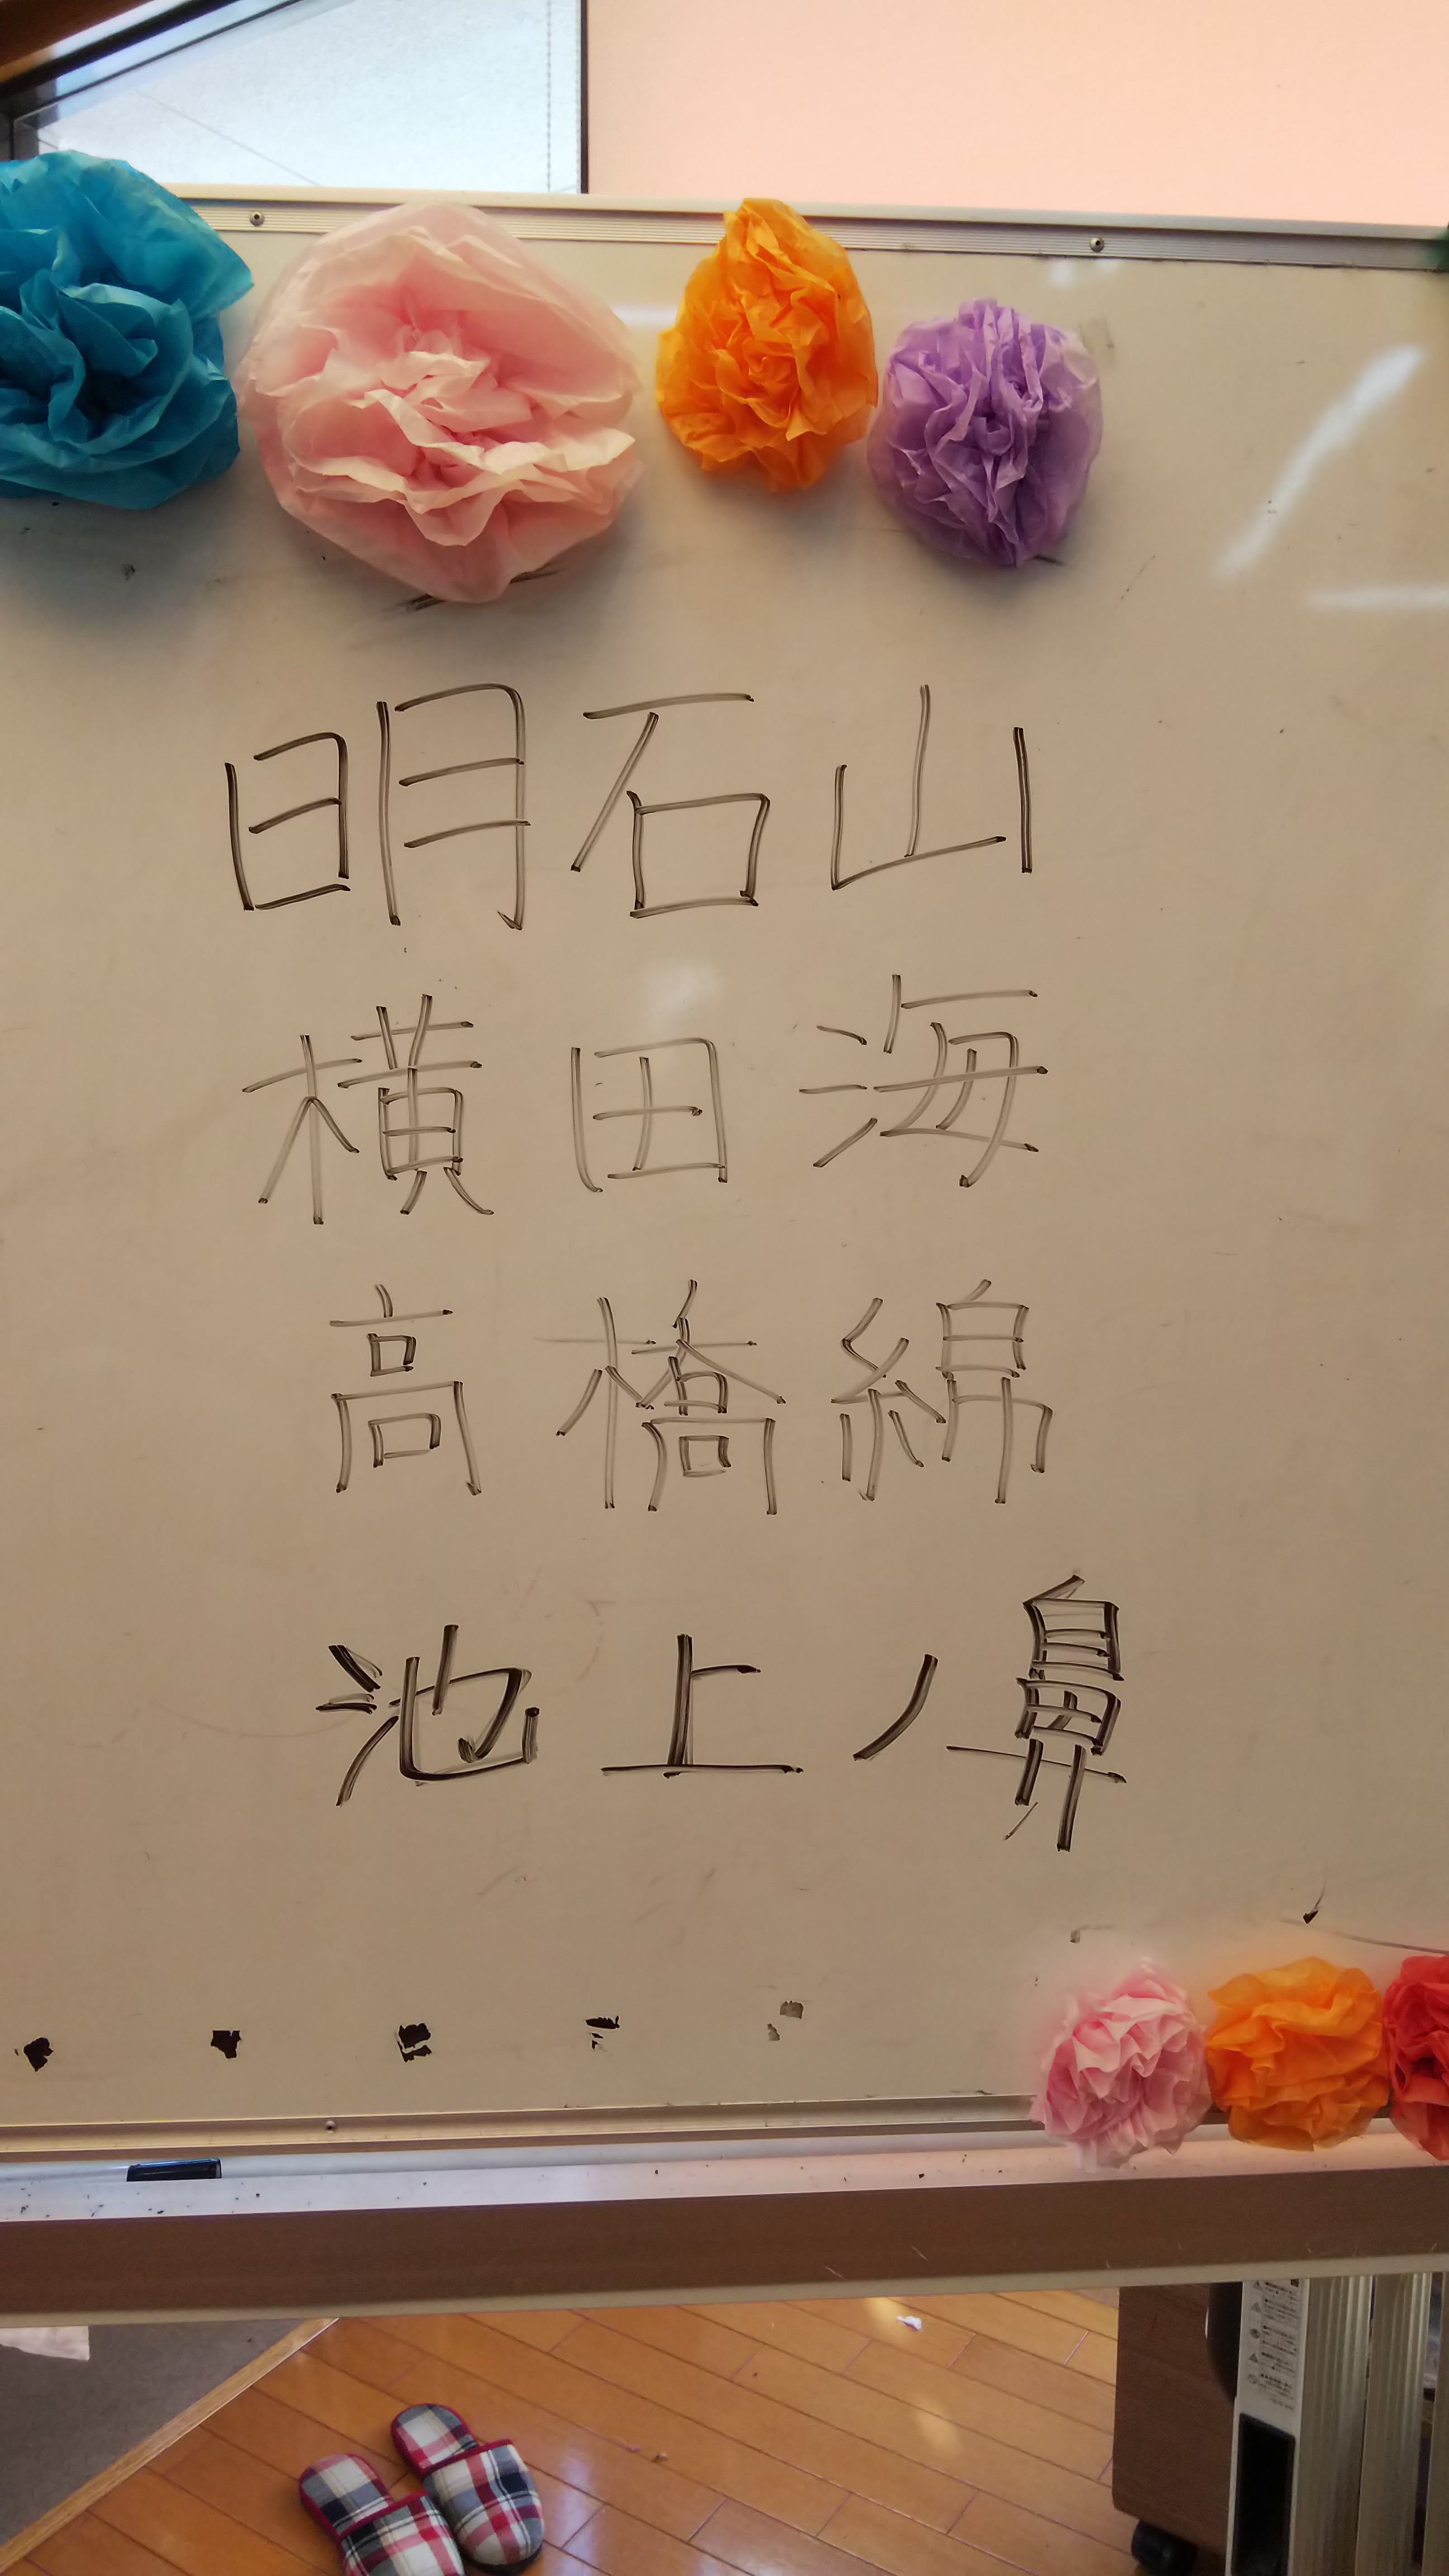 明石山
横田海
高橋綿
池上ノ鼻